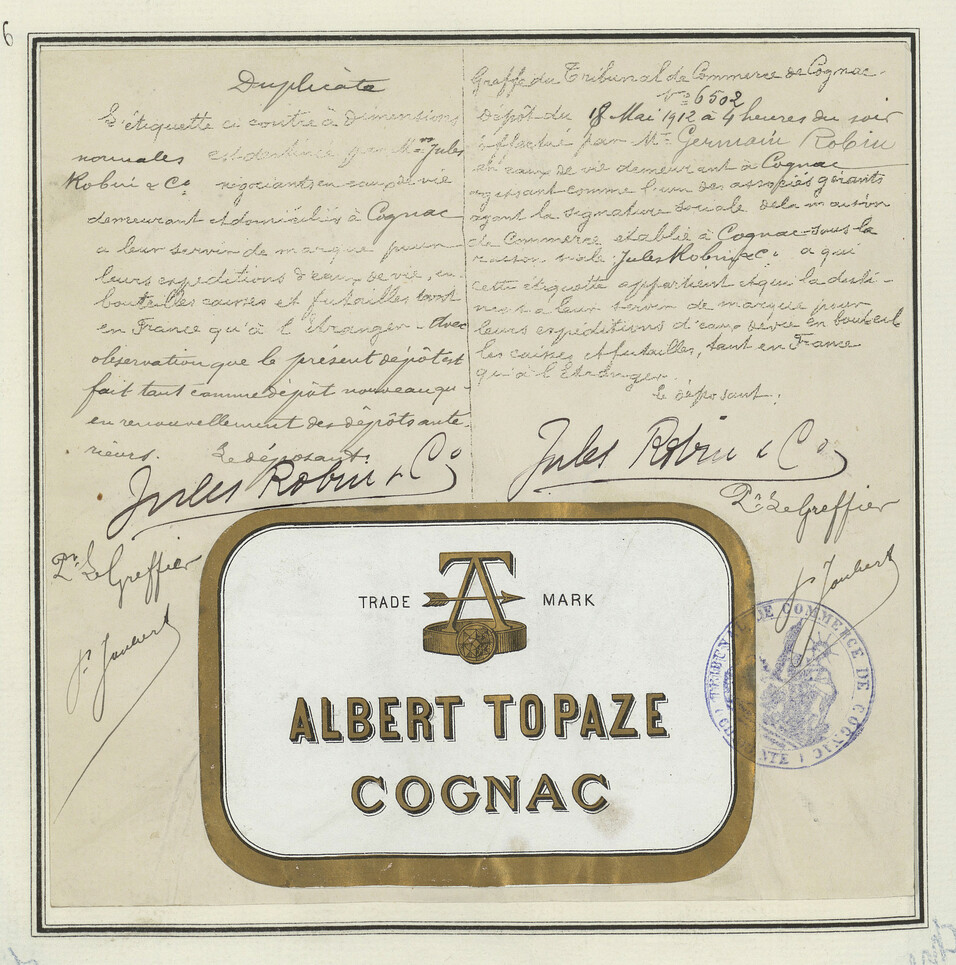 6
Duplicata
L'étiquette ci contre à dimensions
normales est destinée par MM. Jules
Robin & Co négociants en eaux de vie
demeurant et domiciliés à Cognac
a leur servir de marque pour
leurs expéditions d'eaux de vie, en
bouteilles caisses et futailles tant
en France qu'à l'étranger. Avec
observation que le présent dépôt est
fait tant comme dépôt nouveau qu'
en renouvellement des dépôts anté-
rieurs. Le déposant:
Jules Robin & Co
Pr Le Greffier
J. Joubert
Greffe du Tribunal de Commerce de Cognac.
No 6502
Dépôt du 18 Mai 1912 à 4 heures du soir
effectué par Mr Germain Robin
eaux de vie demeurant à Cognac
agissant comme l'un des associés gérants
ayant la signature sociale de la maison
de Commerce établie à Cognac sous la
raison sociale Jules Robin & Co a qui
cette étiquette appartient et qui la desti-
nent à leur servir de marque pour
leurs expéditions d'eaux de vie en bouteil-
les caisses et futailles, tant en France
qu'à l'étranger.
Le déposant:
Jules Robin & Co
Pr Le Greffier
J. Joubert
TRIBUNAL DE COMMERCE DE COGNAC
TRADE MARK
ALBERT TOPAZE
COGNAC